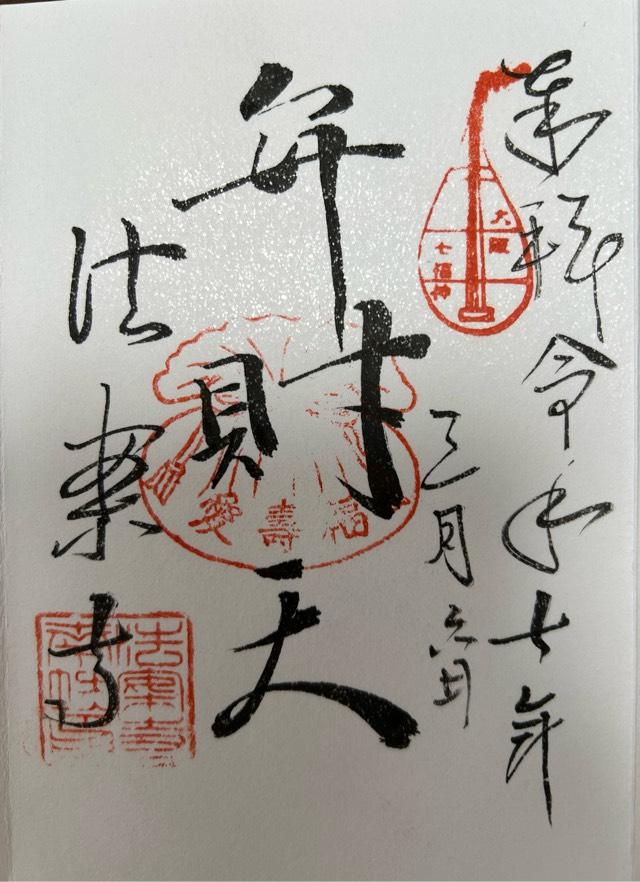 奉拝 令和七年
三月六日
大阪
七福神
弁財天
福寿
法案寺